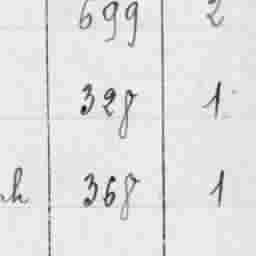 699 2
328 1
368 1